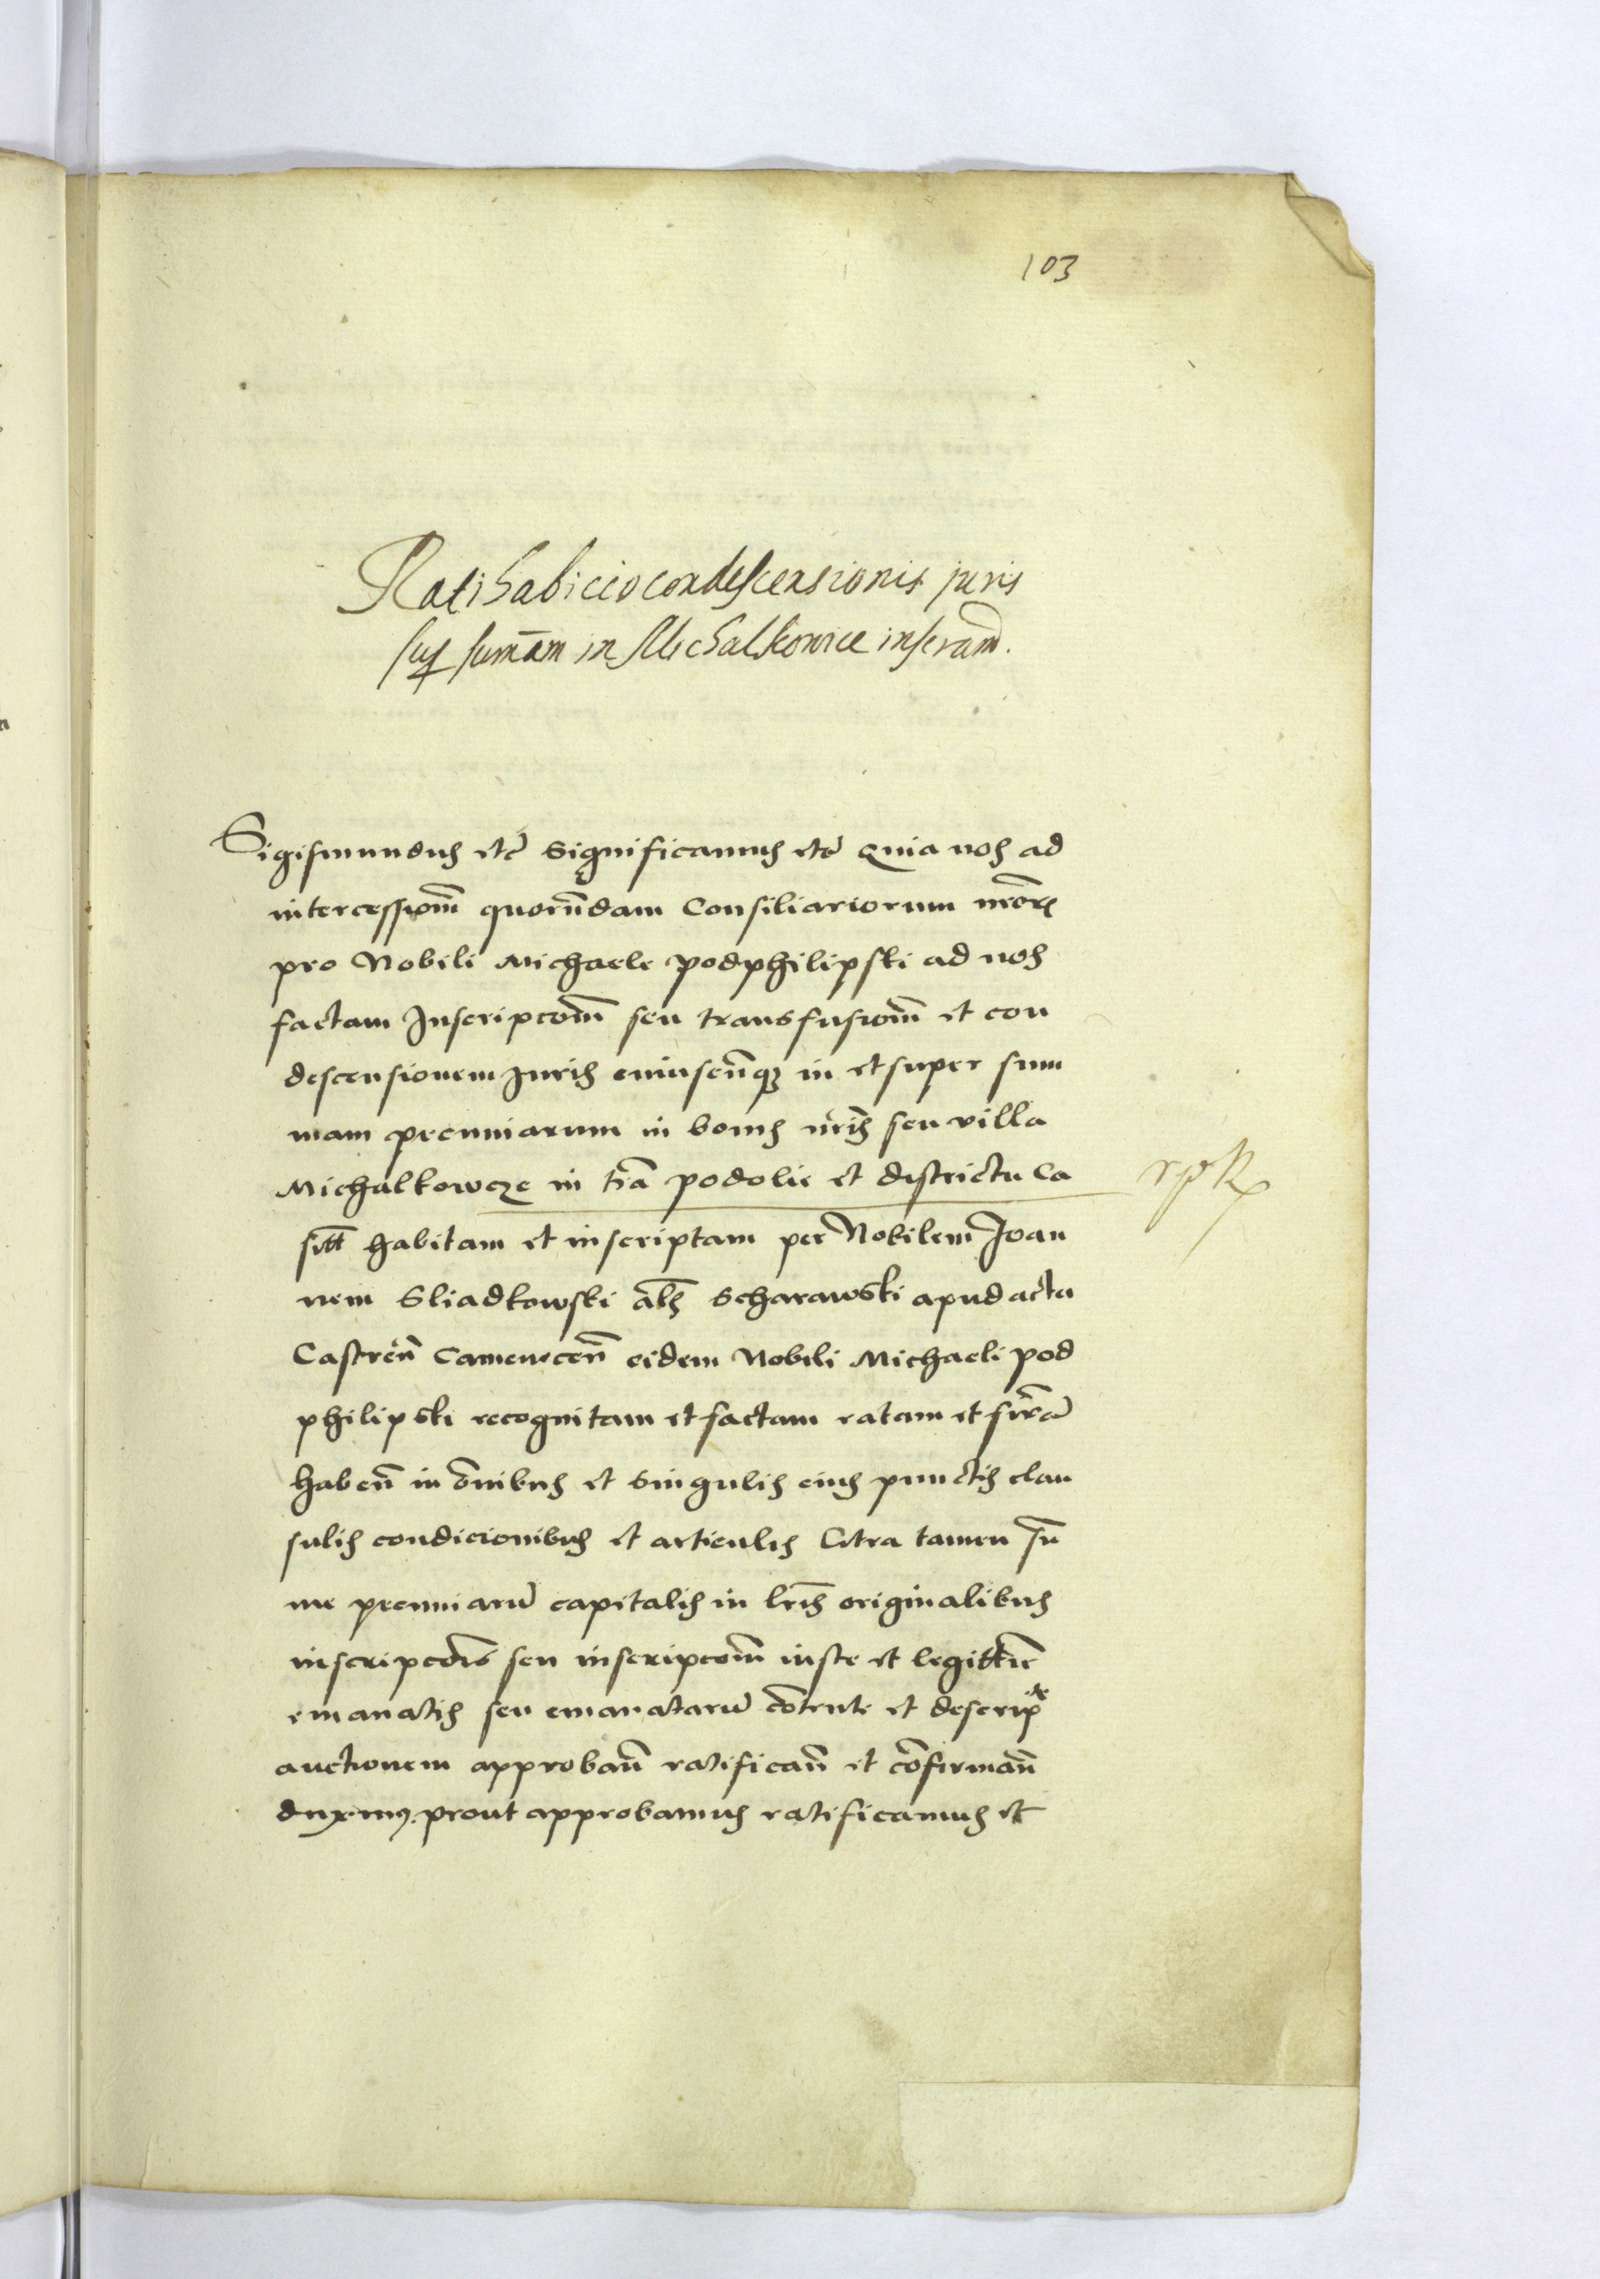 103
Ratihabicio condescensionis juris
sup summam in Michalkowce inscram.
Sigismundus etc Significamus etc Quia nos ad
intercessiom quorundam Consiliariorum nrorum
pro Nobili Michaele podphilipski ad nos
factam Inscripcom seu transfusiom et con
descensionem Juris cuiuscunqz in et super sum
mam pecuniarum in bonis nris seu villa
Michalkowcze in tra podolie et districtu Ca
sitt habitam et inscriptam per Nobilem Joan
nem Sliadkowski als Scharawski apud acta
Castren Camenecen eidem Nobili Michaeli pod
philipski recognitam et factam ratam et firma
haben in omibus et singulis eius punctis clau
sulis condicionibus et articulis Citra tamen sum
me pecuniaru capitalis in lris originalibus
inscripcois seu inscripcom iuste et legittime
emanatis seu emanataru contente et descripte
auctionem approban ratifican et confirman
duximus prout approbamus ratificamus et